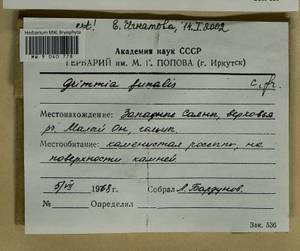 det! Е. Игнатова, 14.I.2002
Herbarium MW, Bryophyta
MW 9 040 778
Академия наук СССР
ГЕРБАРИЙ ИМ. М. Г. ПОПОВА (г. Иркутск)
Grimmia funalis c. fr.
Местонахождение: Западные Саяны, верховья
р. Малый Он, гольцы
Местообитание: каменистая россыпь, на
поверхности камней
5/VII 1968 г. Собрал Л. Бардунов
№ Определил
Зак. 536